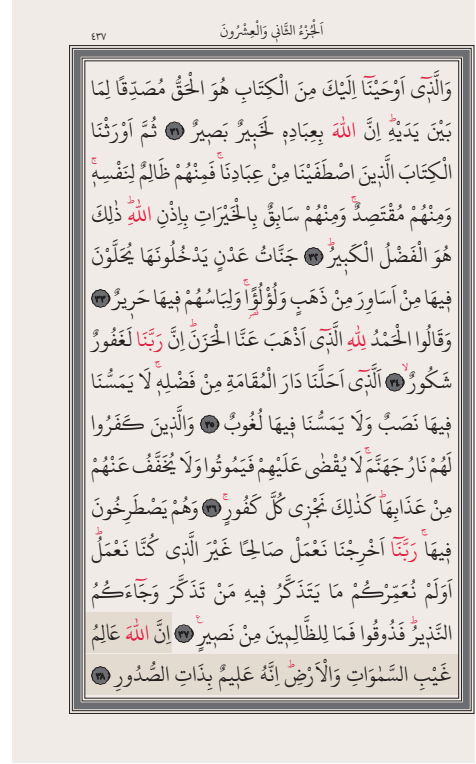 اَلْجُزْءُ الثَّانِي وَالْعِشْرُونَ
٤٣٧
وَالَّذ۪ٓي اَوْحَيْنَٓا اِلَيْكَ مِنَ الْكِتَابِ هُوَ الْحَقُّ مُصَدِّقًا لِمَا
بَيْنَ يَدَيْهِۜ اِنَّ اللّٰهَ بِعِبَادِه۪ لَخَب۪يرٌ بَص۪يرٌ ﴿٣١﴾ ثُمَّ اَوْرَثْنَا
الْكِتَابَ الَّذ۪ينَ اصْطَفَيْنَا مِنْ عِبَادِنَاۚ فَمِنْهُمْ ظَالِمٌ لِنَفْسِه۪ۚ
وَمِنْهُمْ مُقْتَصِدٌۚ وَمِنْهُمْ سَابِقٌ بِالْخَيْرَاتِ بِاِذْنِ اللّٰهِۜ ذٰلِكَ
هُوَ الْفَضْلُ الْكَب۪يرُۜ ﴿٣٢﴾ جَنَّاتُ عَدْنٍ يَدْخُلُونَهَا يُحَلَّوْنَ
ف۪يهَا مِنْ اَسَاوِرَ مِنْ ذَهَبٍ وَلُؤْلُؤً۬اۚ وَلِبَاسُهُمْ ف۪يهَا حَر۪يرٌ ﴿٣٣﴾
وَقَالُوا الْحَمْدُ لِلّٰهِ الَّذ۪ٓي اَذْهَبَ عَنَّا الْحَزَنَۜ اِنَّ رَبَّنَا لَغَفُورٌ
شَكُورٌۙ ﴿٣٤﴾ اَلَّذ۪ٓي اَحَلَّنَا دَارَ الْمُقَامَةِ مِنْ فَضْلِه۪ۚ لَا يَمَسُّنَا
ف۪يهَا نَصَبٌ وَلَا يَمَسُّنَا ف۪يهَا لُغُوبٌ ﴿٣٥﴾ وَالَّذ۪ينَ كَفَرُوا
لَهُمْ نَارُ جَهَنَّمَۚ لَا يُقْضٰى عَلَيْهِمْ فَيَمُوتُوا وَلَا يُخَفَّفُ عَنْهُمْ
مِنْ عَذَابِهَاۜ كَذٰلِكَ نَجْز۪ي كُلَّ كَفُورٍۚ ﴿٣٦﴾ وَهُمْ يَصْطَرِخُونَ
ف۪يهَاۚ رَبَّنَٓا اَخْرِجْنَا نَعْمَلْ صَالِحًا غَيْرَ الَّذ۪ي كُنَّا نَعْمَلُۜ
اَوَلَمْ نُعَمِّرْكُمْ مَا يَتَذَكَّرُ ف۪يهِ مَنْ تَذَكَّرَ وَجَٓاءَكُمُ
النَّذ۪يرُۜ فَذُوقُوا فَمَا لِلظَّالِم۪ينَ مِنْ نَص۪يرٍ۟ ﴿٣٧﴾ اِنَّ اللّٰهَ عَالِمُ
غَيْبِ السَّمٰوَاتِ وَالْاَرْضِۜ اِنَّهُ عَل۪يمٌ بِذَاتِ الصُّدُورِ ﴿٣٨﴾